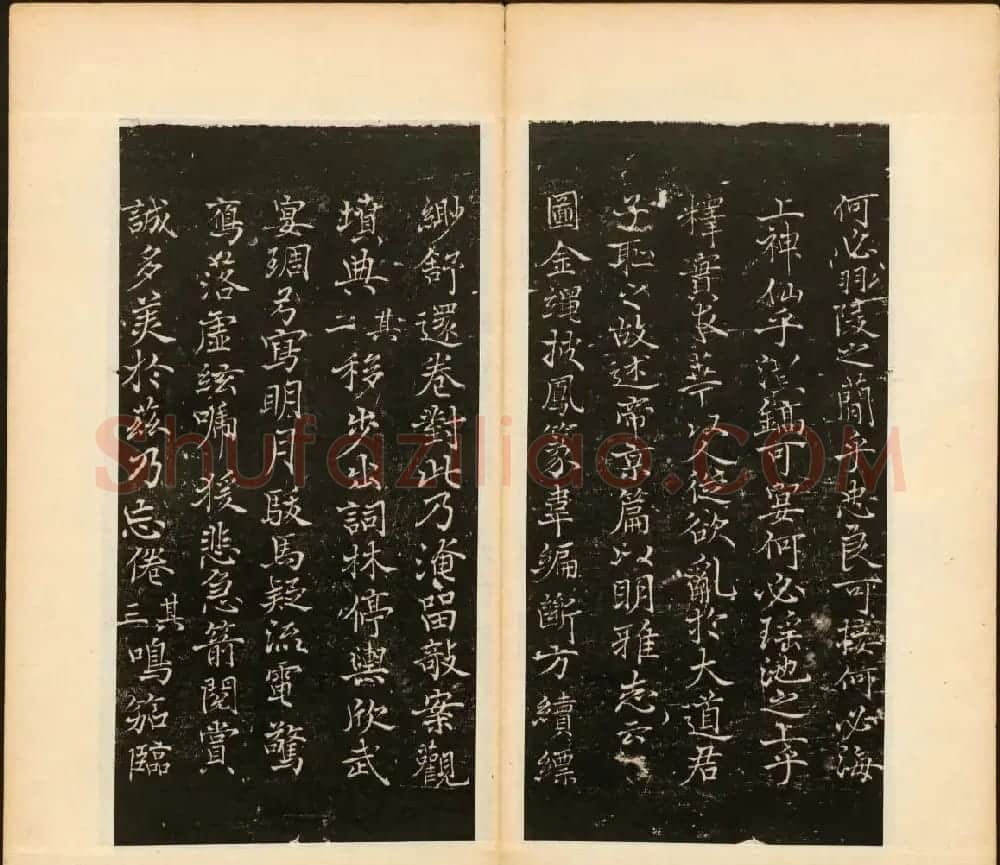 何必陵之簡乎忠良可接何必海
上神仙乎灃鎬可宴何必瑤池之上乎
釋實求華以人從欲亂於大道君
子恥之故述帝京篇以明雅志云
圖金繩披鳳篆韋編斷方續縹
緲舒還卷對此乃淹留敧案觀
墳典其二移步出詞林停輿欣武
宴琱弓寫明月駿馬疑流電驚
鴈落虛絃嘯猨悲急箭閱賞
誠多美於茲乃忘倦其三鳴笳臨
Shufaziliao.COM